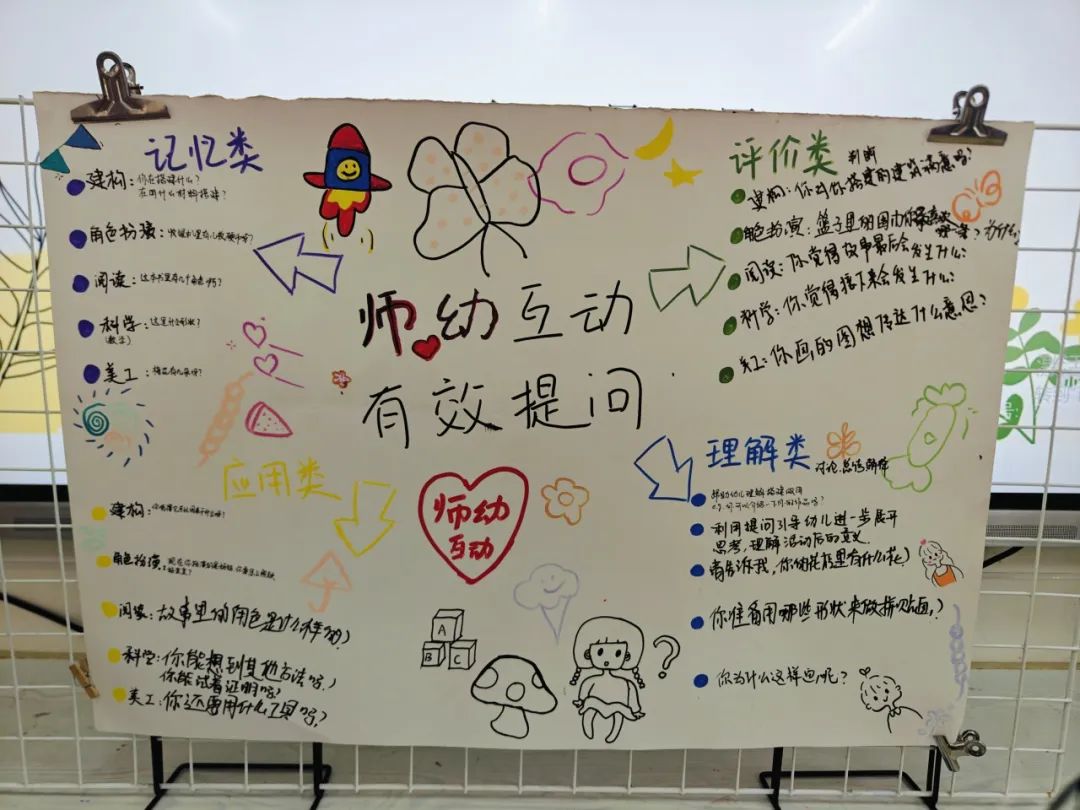 师幼互动
有效提问
记忆类
建构：你在搭建什么？
在用什么材料搭建？
角色扮演：
阅读：这本书里有几个角色呀？
科学：这是什么形状？
(数学)
美工：
评价类 判断
建构：你对你搭建的建筑满意吗？
角色扮演：篮子里的
为什么？
阅读：你觉得故事最后会发生什么？
科学：你觉得接下来会发生什么？
美工：你画的图想传达什么意思？
应用类
建构：
角色扮演：
阅读：故事里的角色是什么样的？
科学：你能想到其他方法吗？
你能试着证明吗？
美工：你还要用什么工具吗？
师幼
互动
A
B C
?
理解类 讨论.总结.解释
帮助幼儿理解搭建
利用提问引导幼儿进一步展开
思考，理解活动后的意义
请告诉我，你的花瓶里有什么花？
你准备用哪些形状来做拼贴画？
你为什么这样画呢？